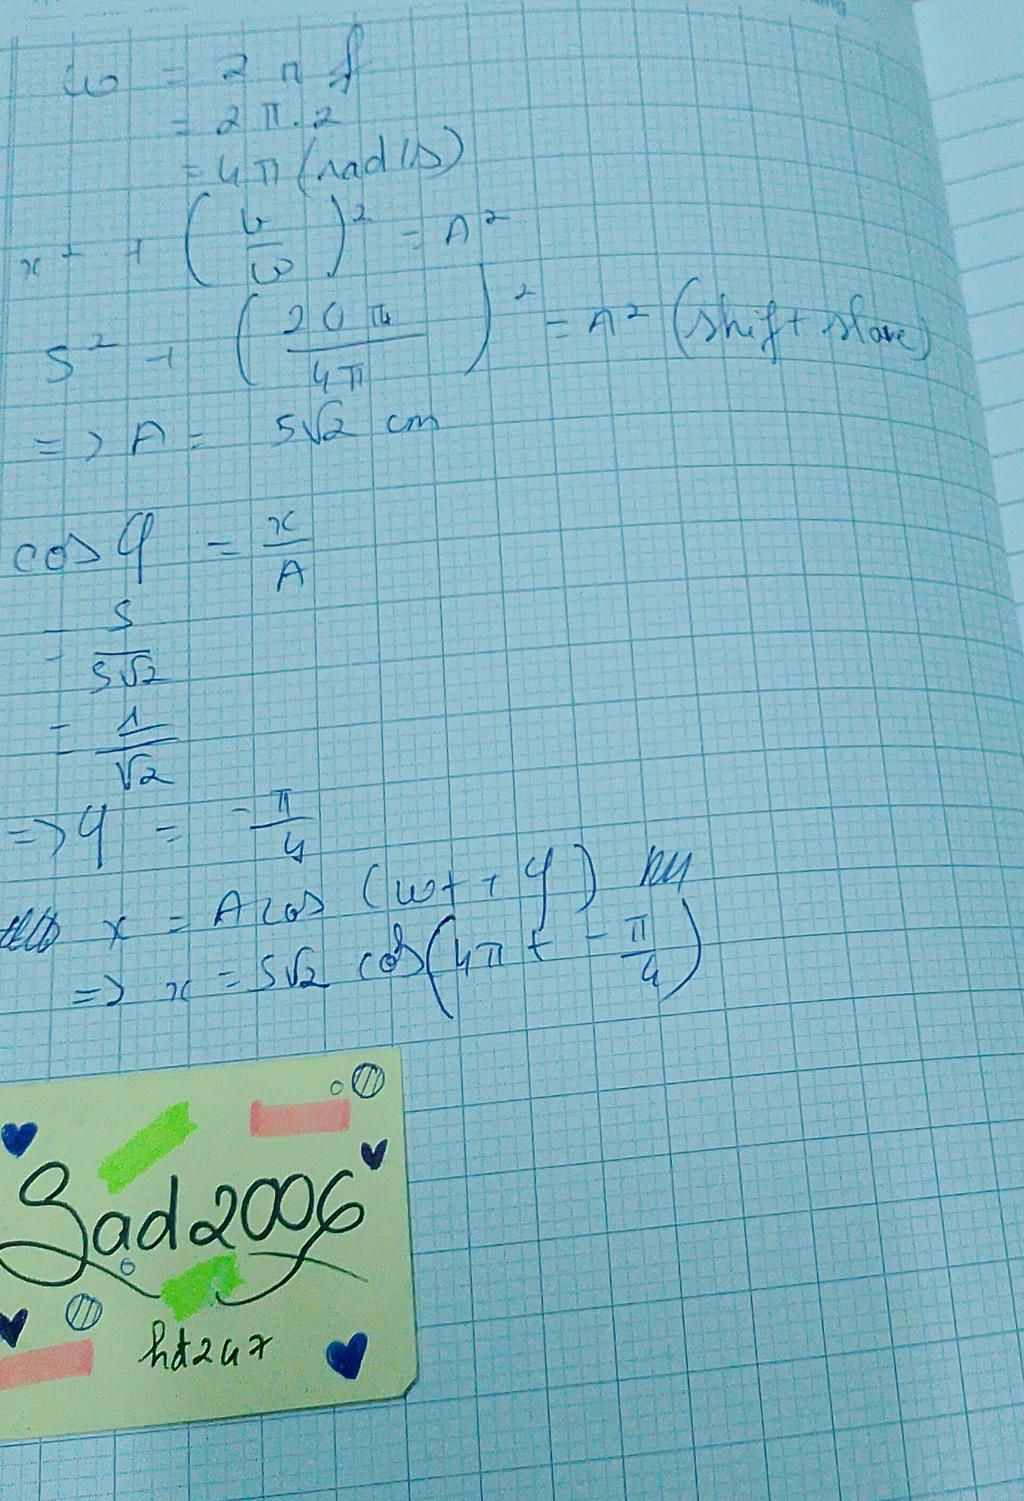 ω = 2π f
= 2π.2
= 4π (rad/s)
x² + (v/ω)² = A²
5² + (20π/4π)² = A² (shift slove)
=> A = 5√2 cm
cos φ = x/A
= 5/5√2
= 1/√2
=> φ = -π/4
x = A cos (ωt + φ)
=> x = 5√2 cos (4πt - π/4)
Sad2006
hd247